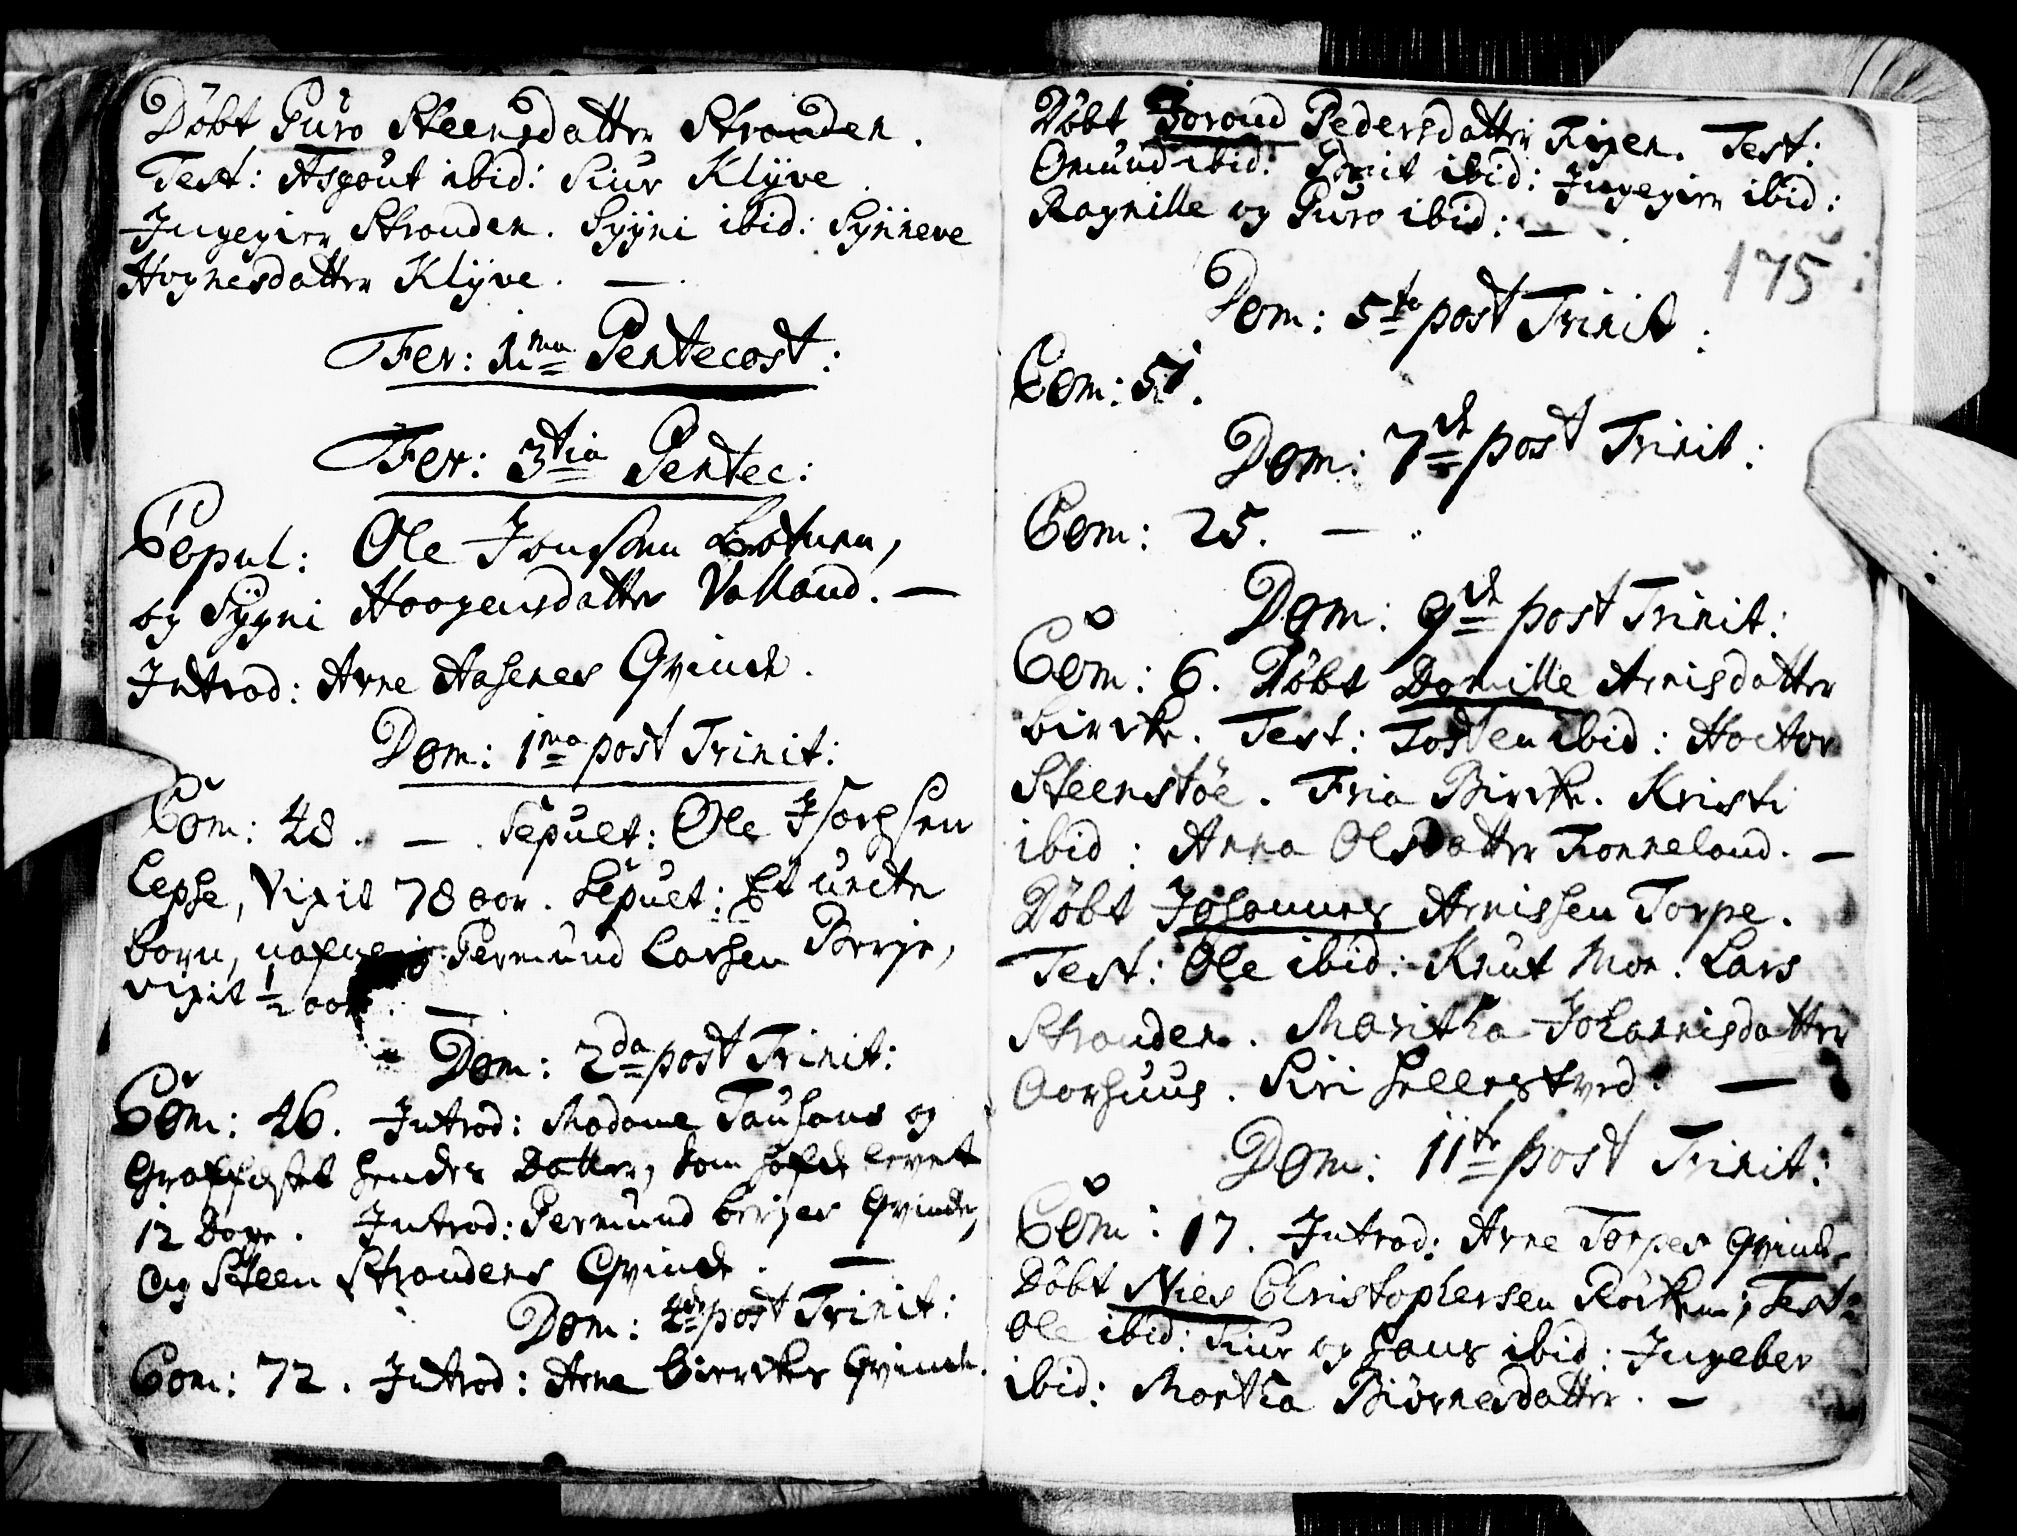 Döbt Guro Steensdatter Stranden.
Test: Asgout ibid: Siur Klÿve.
Ingegier Stranden. Sÿgni ibid: Sÿnneve
Hognesdatter Klÿve. —
Fer: 1ma Pentecost:
Fer: 3tia Pentec:
Copul: Ole Jonssøn
og Sÿgni Haagensdatter Valland. —
Introd: Arne Aasenes Qvinde.
Dom: 1ma post Trinit:
Com: 48. — Sepult: Ole
Lepse, Vixit 78 aar. Sepult: Et uecte
barn, nafnlig Germund Larsen Berje,
vixit ½ aar. —
Dom: 2da post Trinit:
Com: 46. Introd: Madame Tausans og
Graffæstet hendes Datter, som hafde levet
12 Dage. Introd: Germund Berjes Qvinde,
Og Steen Strandens Qvinde. —
Dom: 4de post Trinit:
Com: 72. Introd: Arne Birckes Qvinde.
Döbt Joroud Pedersdatter Tigen. Test:
Omund ibid: ibid: Ingegier ibid:
Ragnille og Guro ibid: —
175
Dom: 5te post Trinit:
Com: 51.
Dom: 7de post Trinit:
Com: 25. —
Dom: 9de post Trinit:
Com: 6. Döbt Domille Arnisdatter
Bircke. Test: Tosten ibid: Hoctor
Steenstöe. Fria Bircke. Kristi
ibid: Anna Olsdatter Tonneland. —
Döbt Johannes Arnissen Torpe.
Test: Ole ibid: Knut Moe. Lars
Stranden. Maritha Johannisdatter
Aarhuus. Siri Hellestved. —
Dom: 11te post Trinit:
Com: 17. Introd: Arne Torpes Qvinde
Döbt Nies Christophersen Test:
Ole ibid: Siur og Hans ibid: Ingeber
ibid: Martha Biörnesdatter. —